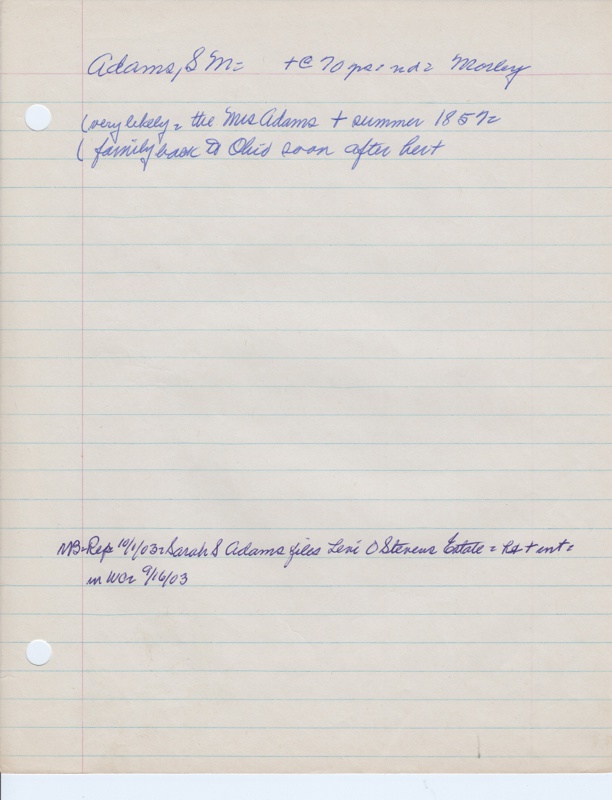 Adams, S M= +@ 70 ps= nd= Morley
(very likely= the Mrs Adams + summer 1857=
( family back to Ohio soon after her+
NB=Rep= 10/1/03=Sarah S Adams files Levi O Stevens Estate= + int=
in WC= 9/16/03